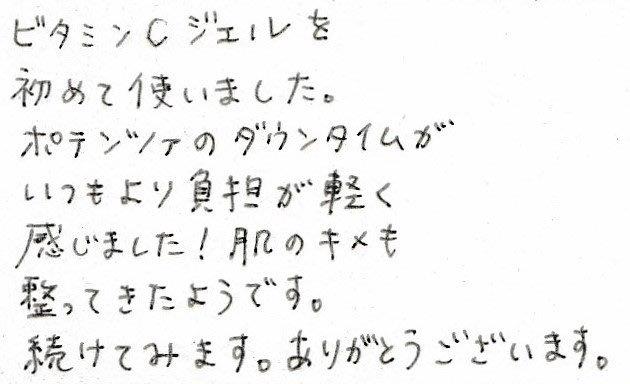 ビタミンCジェルを
初めて使いました。
ポテンツァのダウンタイムが
いつもより負担が軽く
感じました！肌のキメも
整ってきたようです。
続けてみます。ありがとうございます。